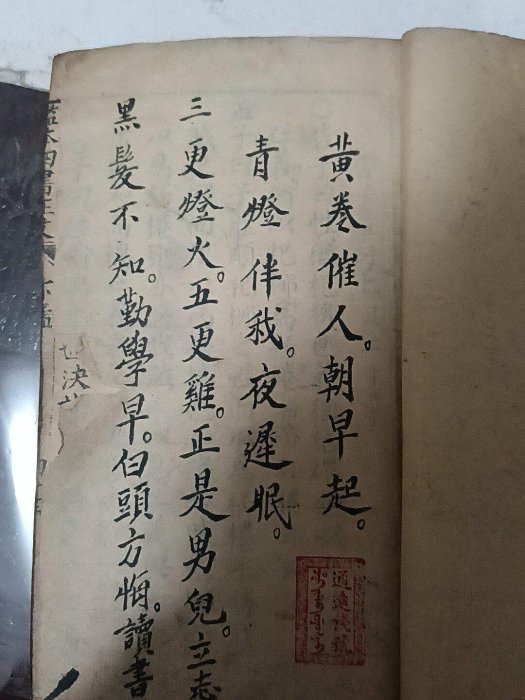 黃卷催人。朝早起。
青燈伴我。夜遲眠。
三更燈火。五更雞。正是男兒立志
黑髮不知。勤學早。白頭方悔。讀書
決
通遠